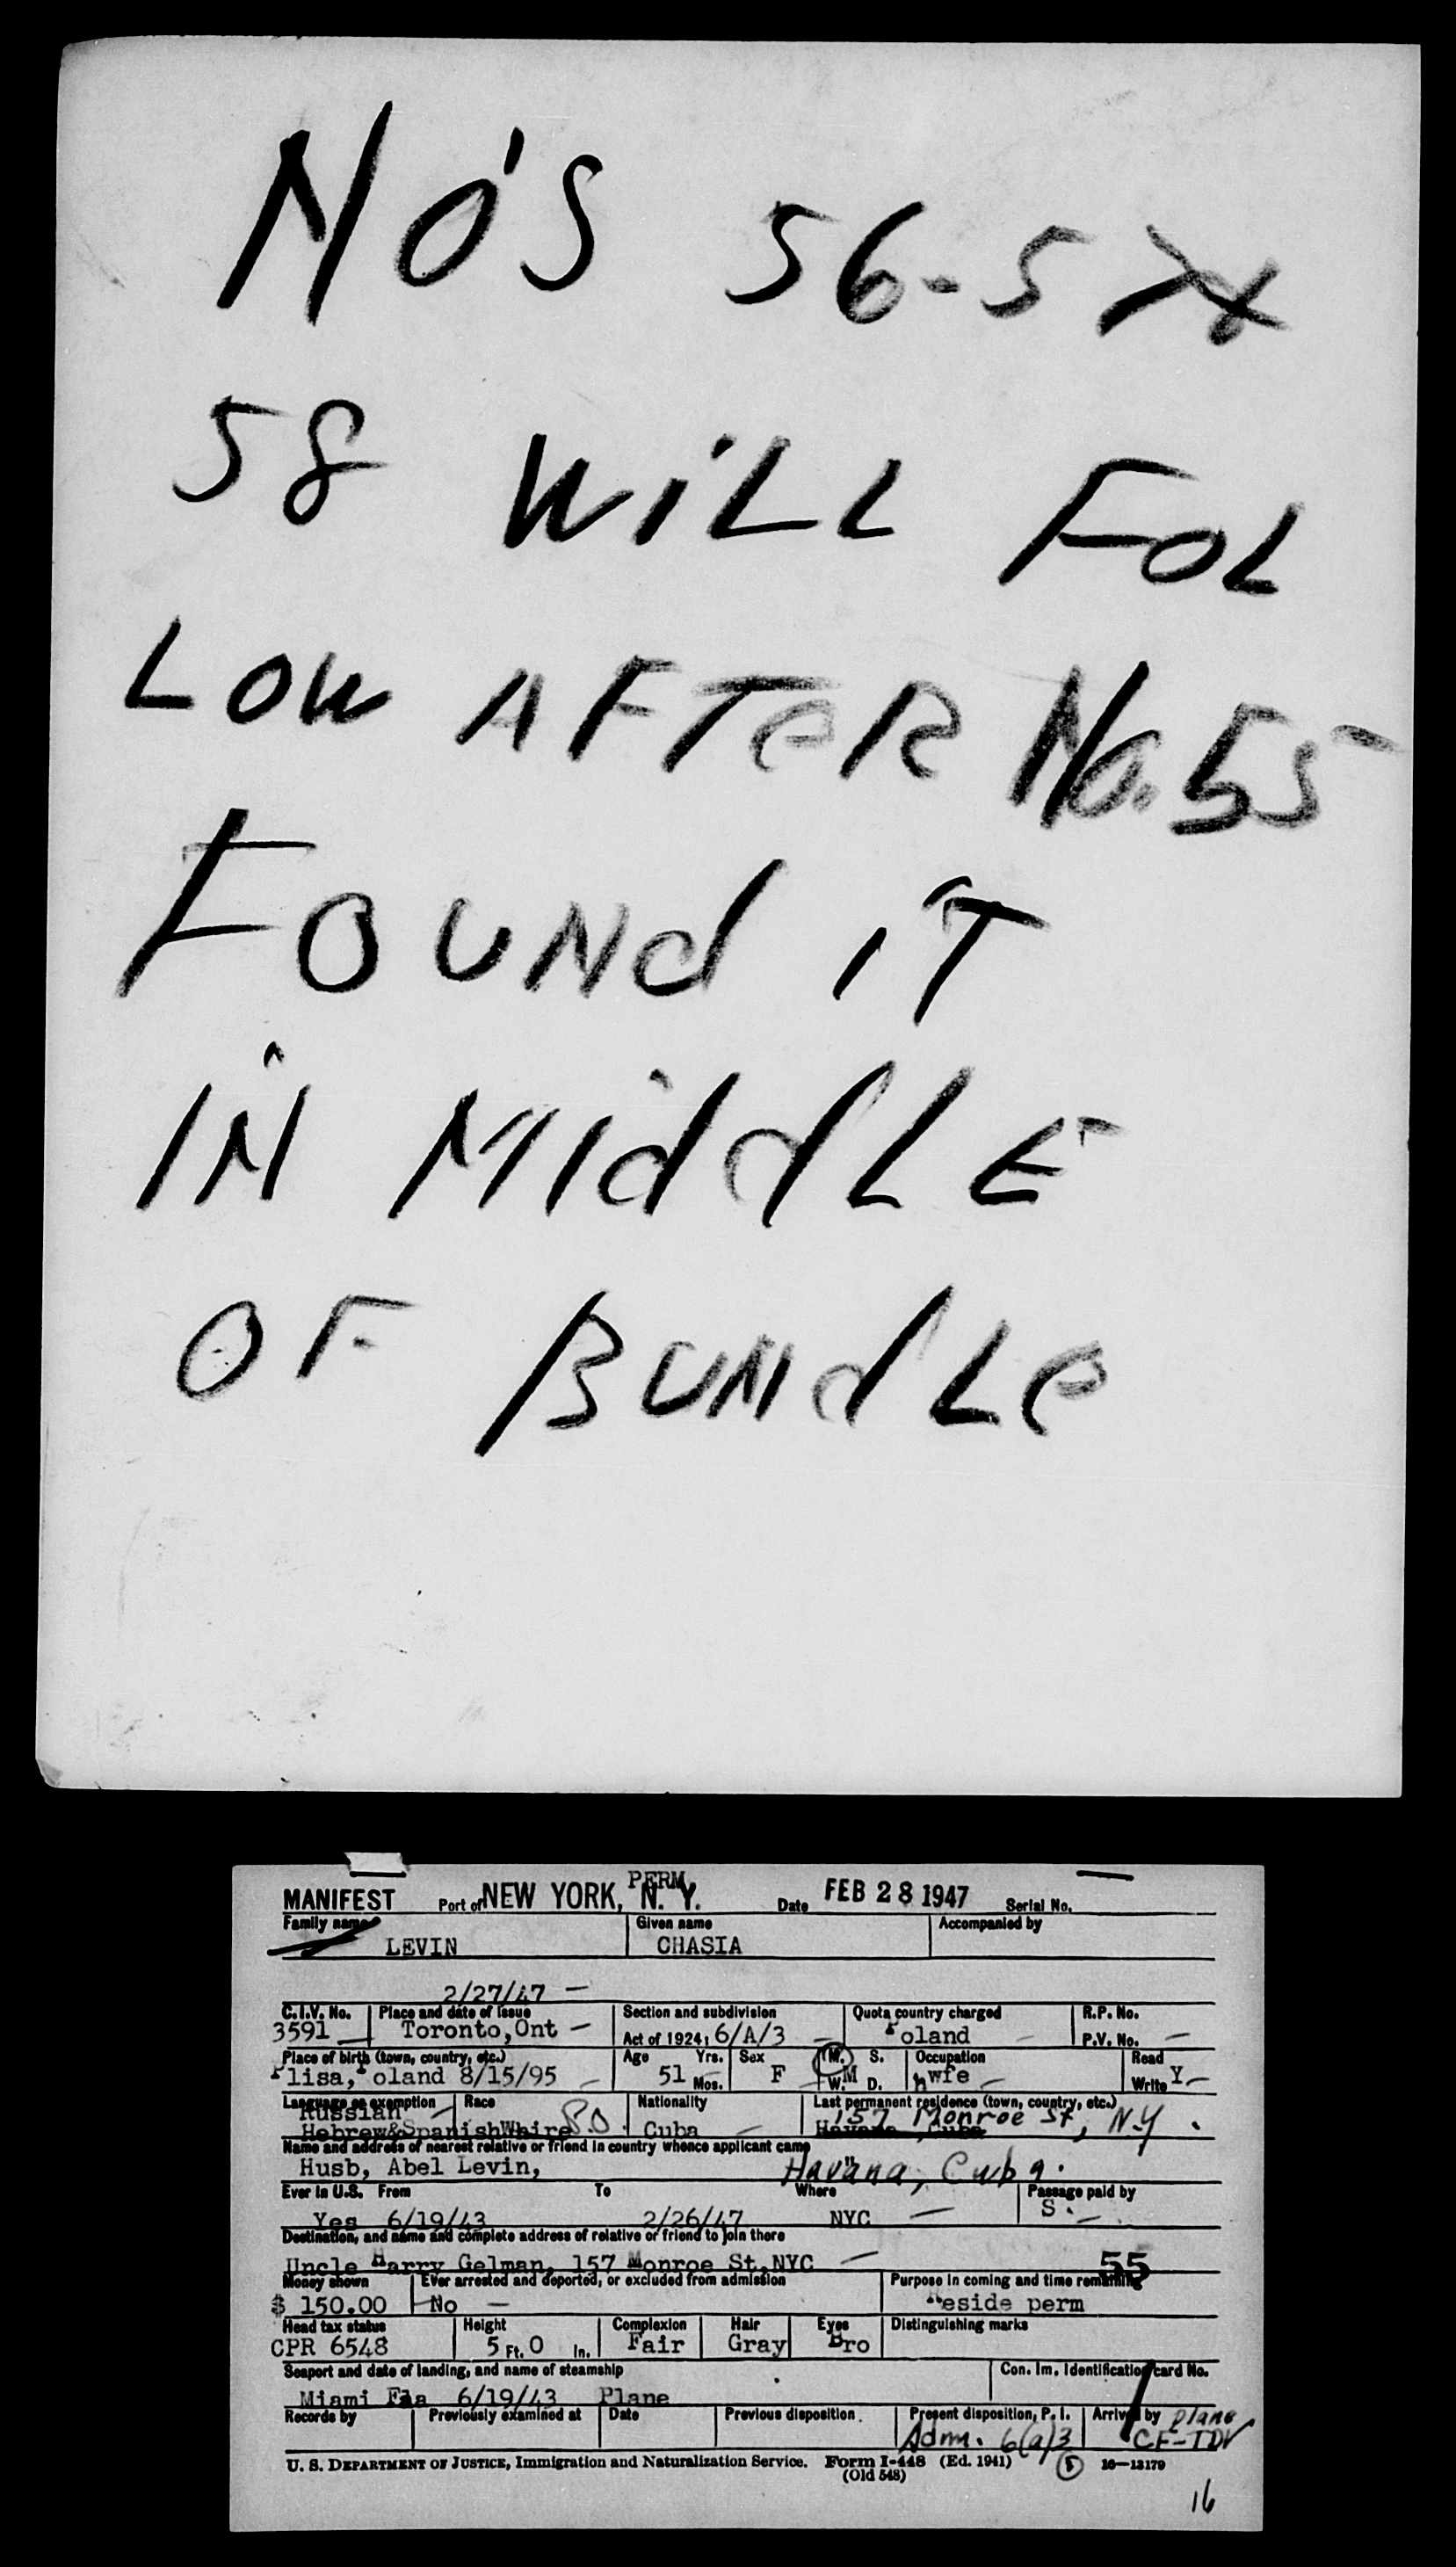 No's 56-57&
58 WiLL FOL
LOW AFTER No. 55
FOUNd iT
IN MiddLE
OF BUNdLe
PERM.
MANIFEST Port of NEW YORK, N. Y. Date FEB 28 1947 Serial No.
Family name Given name Accompanied by
LEVIN CHASIA
2/27/47 —
C.I.V. No. Place and date of issue Section and subdivision Quota country charged R.P. No.
3591 — Toronto, Ont — Act of 1924: 6/A/3 — Poland — P.V. No. —
Place of birth (town, country, etc.) Age Yrs. Sex M. S. Occupation Read
Plisa, Poland 8/15/95 — 51 Mos. F W. M D. hwfe — Write Y —
Language or exemption Race Nationality Last permanent residence (town, country, etc.)
Russian — 157 Monroe St, N.Y.
Hebrew&Spanish Cuba — Havana, Cuba
Name and address of nearest relative or friend in country whence applicant came
Husb, Abel Levin, Havana, Cuba.
Ever in U.S. From To Where Passage paid by
Yes 6/19/43 2/26/47 NYC — S. —
Destination, and name and complete address of relative or friend to join there
Uncle Harry Gelman, 157 Monroe St, NYC — 55
Money shown Ever arrested and deported, or excluded from admission Purpose in coming and time remaining
$ 150.00 No — Reside perm
Head tax status Height Complexion Hair Eyes Distinguishing marks
CPR 6548 5 Ft. 0 In. Fair Gray Bro
Seaport and date of landing, and name of steamship Con. Im. Identification card No.
Miami Fla 6/19/43 Plane
Records by Previously examined at Date Previous disposition Present disposition, P. I. Arrived by plane
Adm. 6(a)3 CF-TDV
U. S. DEPARTMENT OF JUSTICE, Immigration and Naturalization Service. Form I-448 (Ed. 1941) 16—13179
(Old 548)
16